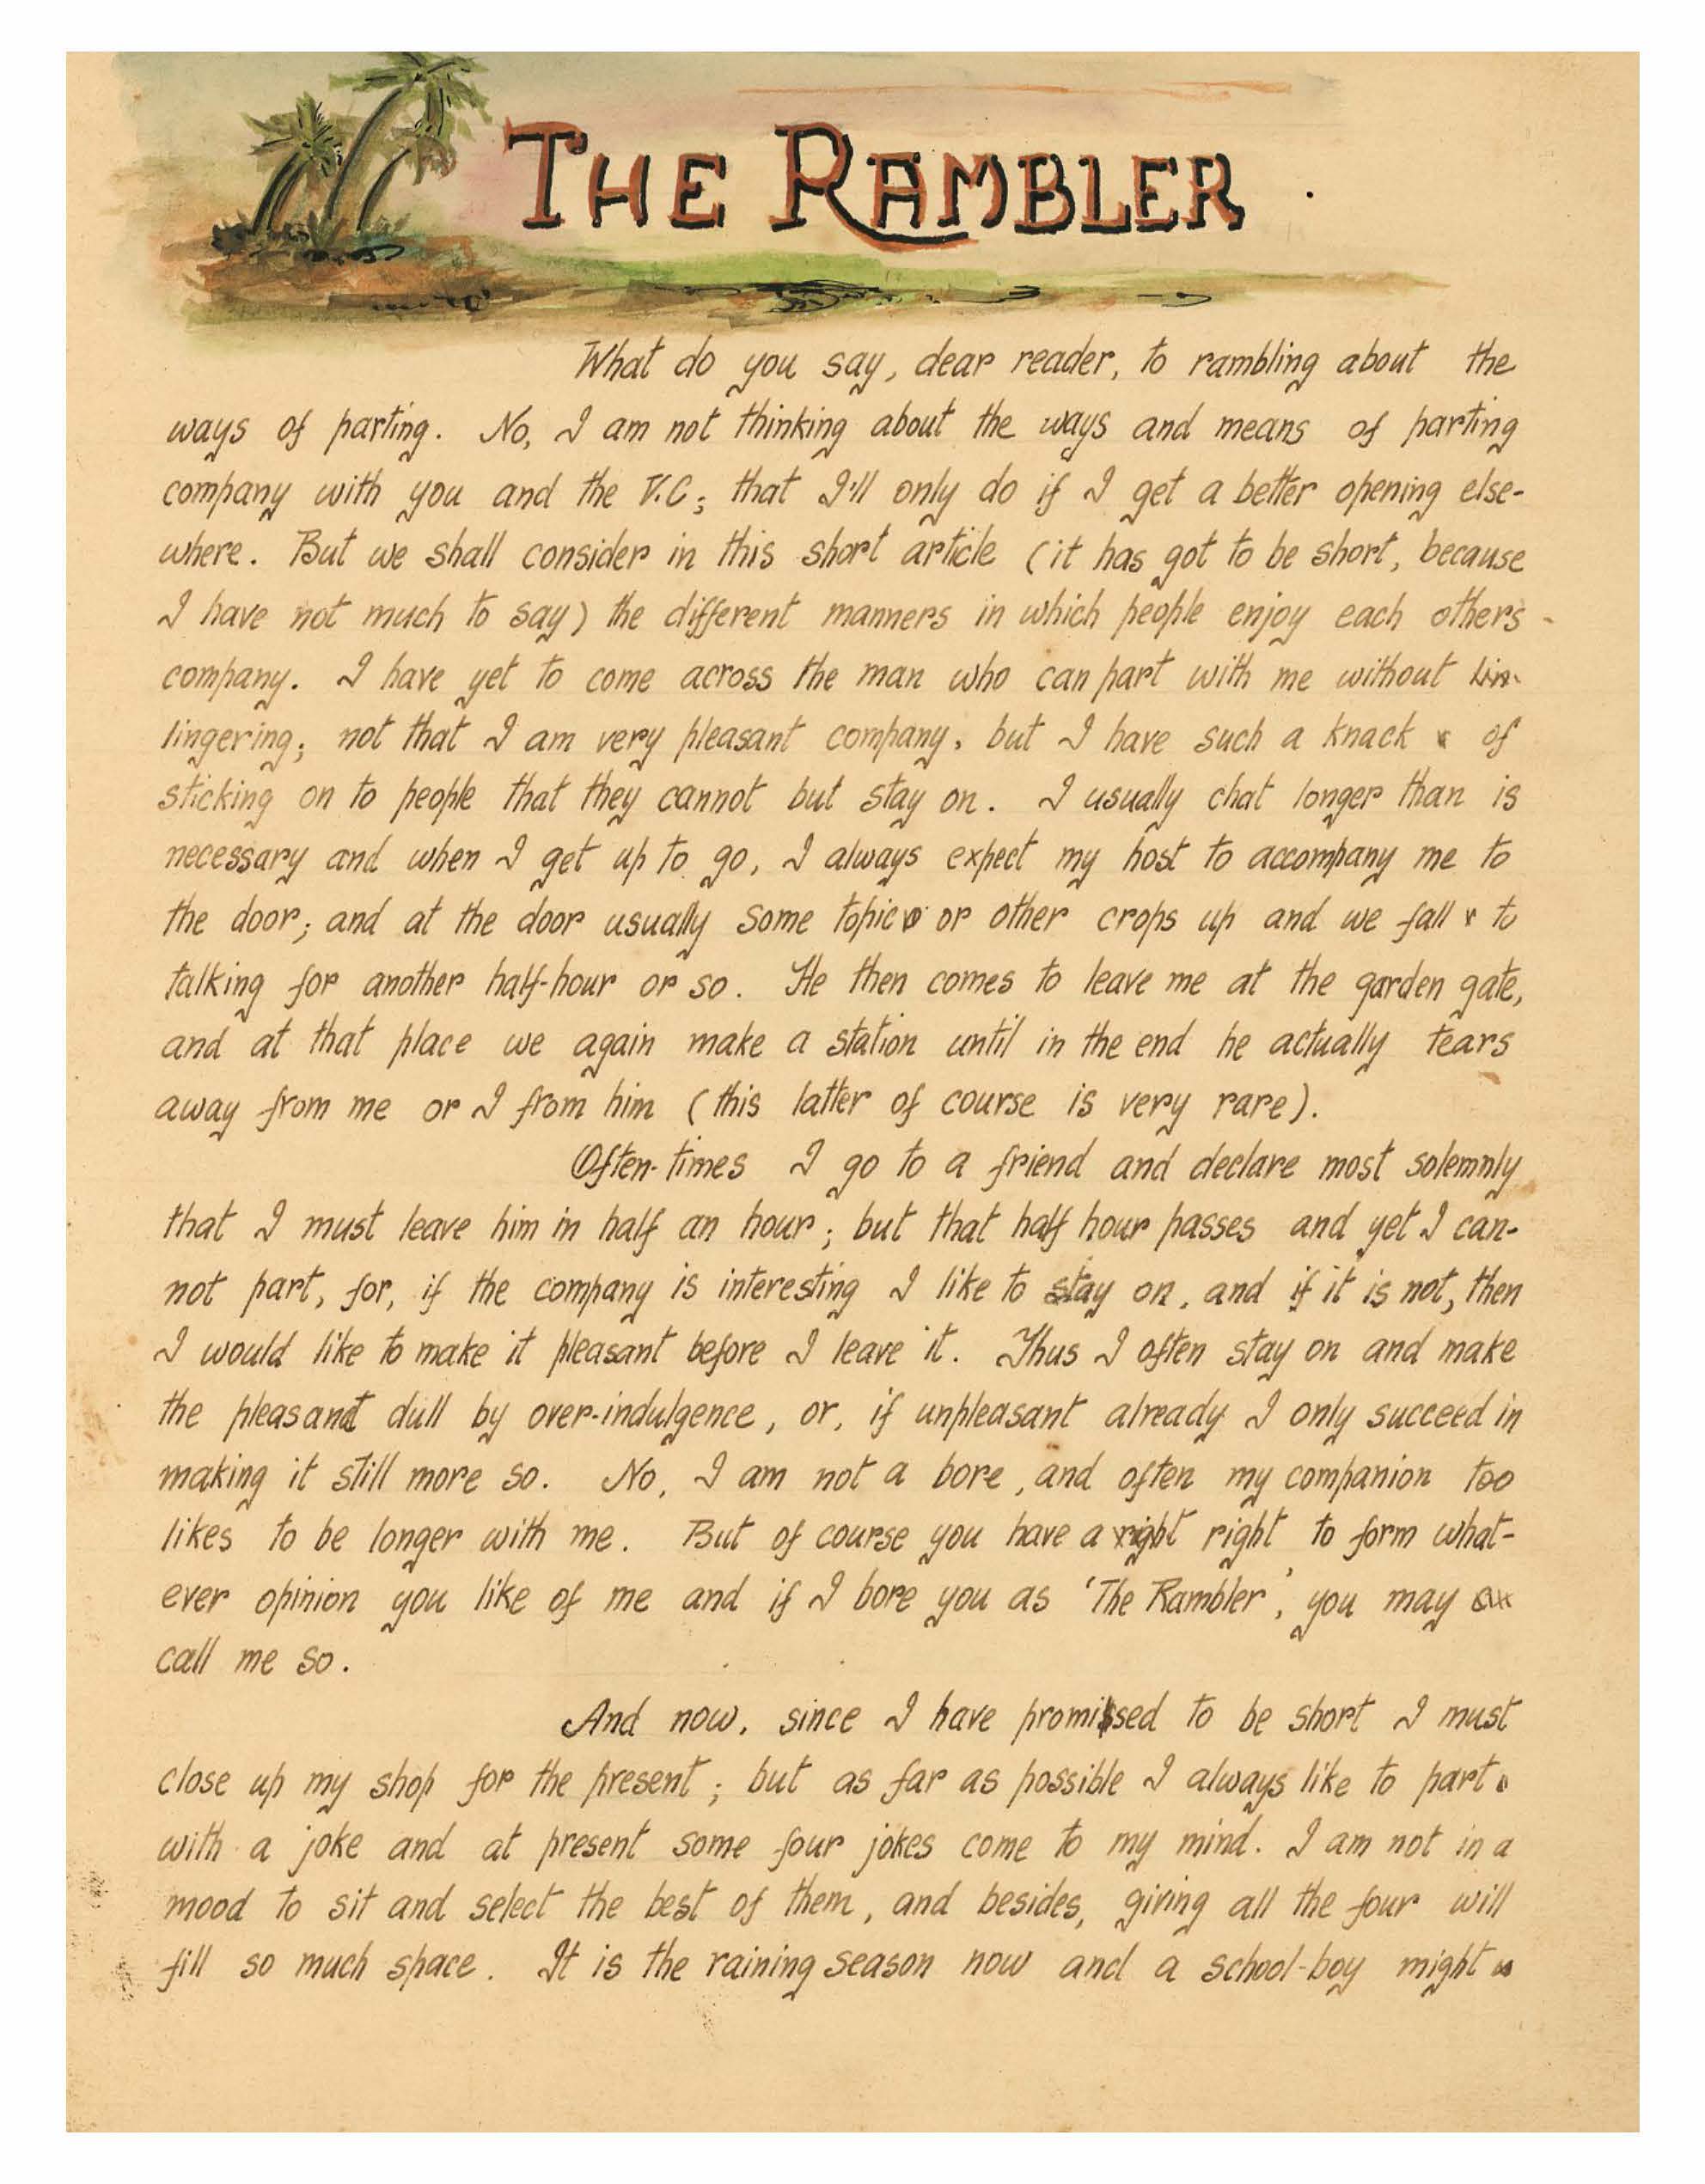 THE RAMBLER.
What do you say, dear reader, to rambling about the
ways of parting. No, I am not thinking about the ways and means of parting
company with you and the V.C; that I'll only do if I get a better opening else-
where. But we shall consider in this short article (it has got to be short, because
I have not much to say) the different manners in which people enjoy each others
company. I have yet to come across the man who can part with me without
lingering; not that I am very pleasant company, but I have such a knack of
sticking on to people that they cannot but stay on. I usually chat longer than is
necessary and when I get up to go, I always expect my host to accompany me to
the door; and at the door usually some topic or other crops up and we fall to
talking for another half-hour or so. He then comes to leave me at the garden gate,
and at that place we again make a station until in the end he actually tears
away from me or I from him (this latter of course is very rare).
Often-times I go to a friend and declare most solemnly
that I must leave him in half an hour; but that half hour passes and yet I can-
not part, for, if the company is interesting I like to stay on, and if it is not, then
I would like to make it pleasant before I leave it. Thus I often stay on and make
the pleasant dull by over-indulgence, or, if unpleasant already I only succeed in
making it still more so. No, I am not a bore, and often my companion too
likes to be longer with me. But of course you have a right right to form what-
ever opinion you like of me and if I bore you as 'The Rambler', you may
call me so.
And now, since I have promissed to be short I must
close up my shop for the present; but as far as possible I always like to part
with a joke and at present some four jokes come to my mind. I am not in a
mood to sit and select the best of them, and besides, giving all the four will
fill so much space. It is the raining season now and a school-boy might